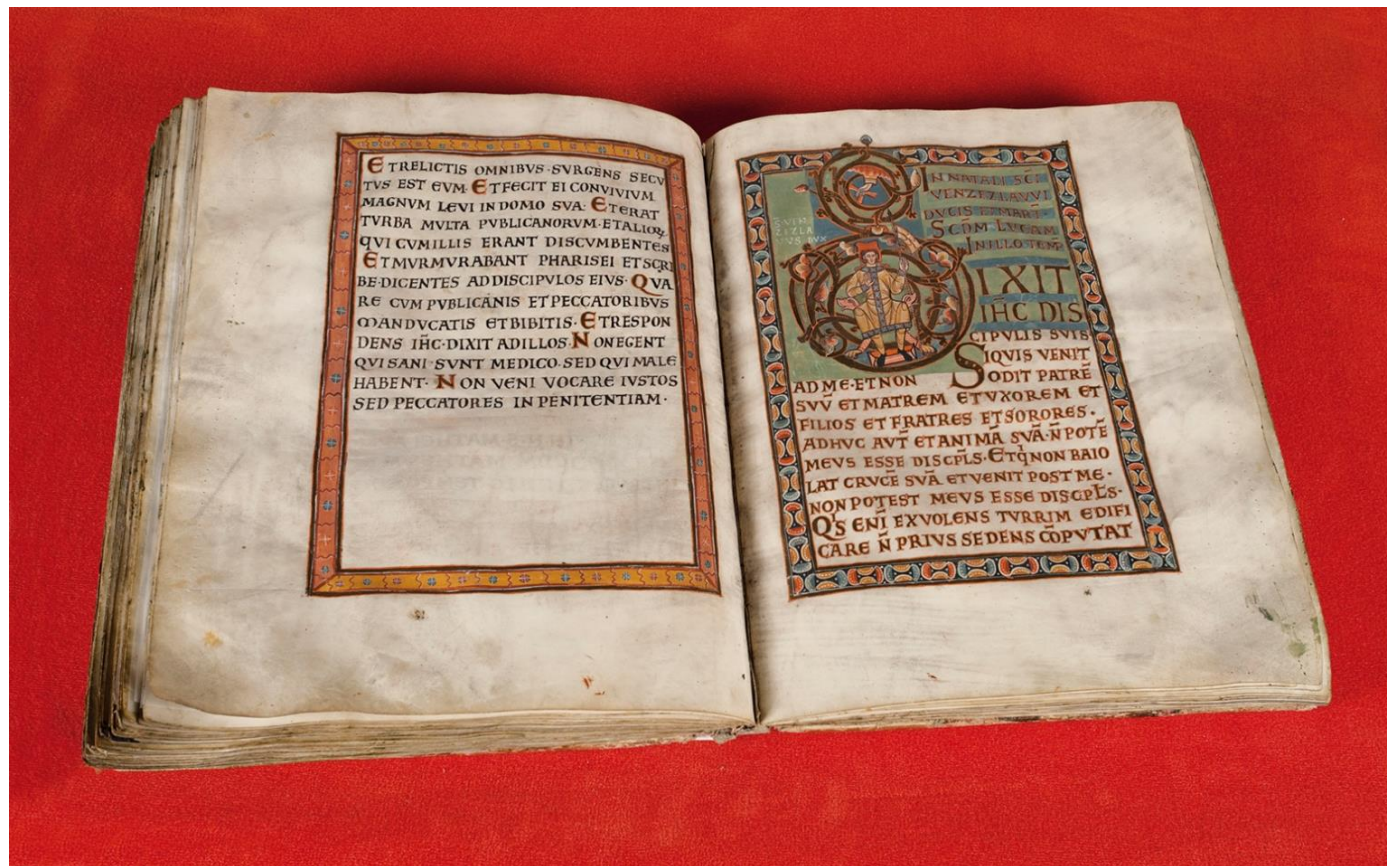 ETRELICTIS OMNIBVS·SVRGENS SECV
TVS EST EVM· ETFECIT EI CONVIVIVM
MAGNVM LEVI IN DOMO SVA· ETERAT
TVRBA MVLTA PVBLICANORVM·ETALIOꝜ
QVI CVMILLIS ERANT DISCVMBENTES
ETMVRMVRABANT PHARISEI ETSCRI
BE·DICENTES ADDISCIPVLOS EIVS· QVA
RE CVM PVBLICANIS ETPECCATORIBVS
MANDVCATIS ETBIBITIS· ETRESPON
DENS IH̄C·DIXIT ADILLOS· NONEGENT
QVI SANI SVNT MEDICO· SED QVI MALE
HABENT· NON VENI VOCARE IVSTOS
SED PECCATORES IN PENITENTIAM·
IN NATALI SC̄I
VENZEZLAVVI
DVCIS ET MART̄·
SCD̄M· LVCAM
IN ILLO TEMP̄
VVEN
ZEZLA
VVS DVX
DIXIT
IH̄C DIS
CIPVLIS SVIS
SIQVIS VENIT
AD ME·ETNON ODIT PATRĒ
SVV̄ ET MATREM ETVXOREM ET
FILIOS ET FRATRES ETSORORES·
ADHVC AVT̄ ETANIMĀ SVĀ·N̄ POTĒ
MEVS ESSE DISCPL̄S· ETQ̄NON BAIO
LAT CRVCĒ SVĀ ETVENIT POST ME·
NON POTEST MEVS ESSE DISCPL̄S·
Q̄S ENĪ EXVOLENS TVRRIM EDIFI
CARE N̄ PRIVS SEDENS CŌPVTAT